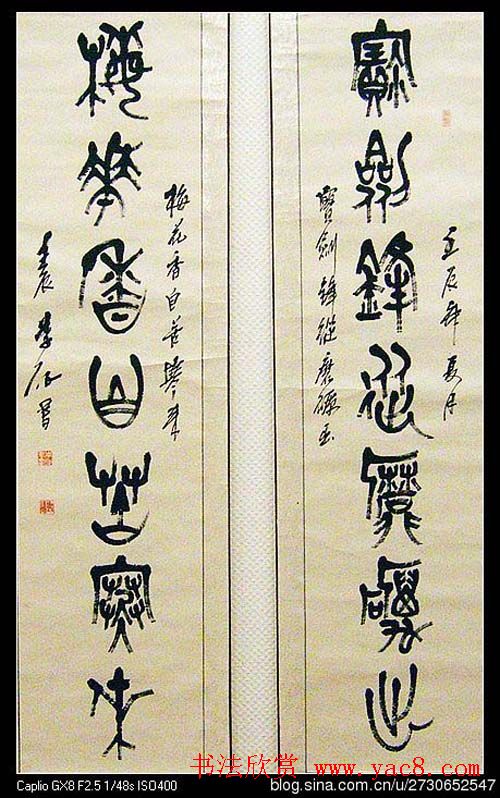 壬辰年夏月
寶劍鋒從磨礪出
寶劍鋒從磨礪出
梅花香自苦寒來
梅華香自苦寒來
书法欣赏 www.yac8.com
Caplio GX8 F2.5 1/48s ISO400
blog.sina.com.cn/u/2730652547